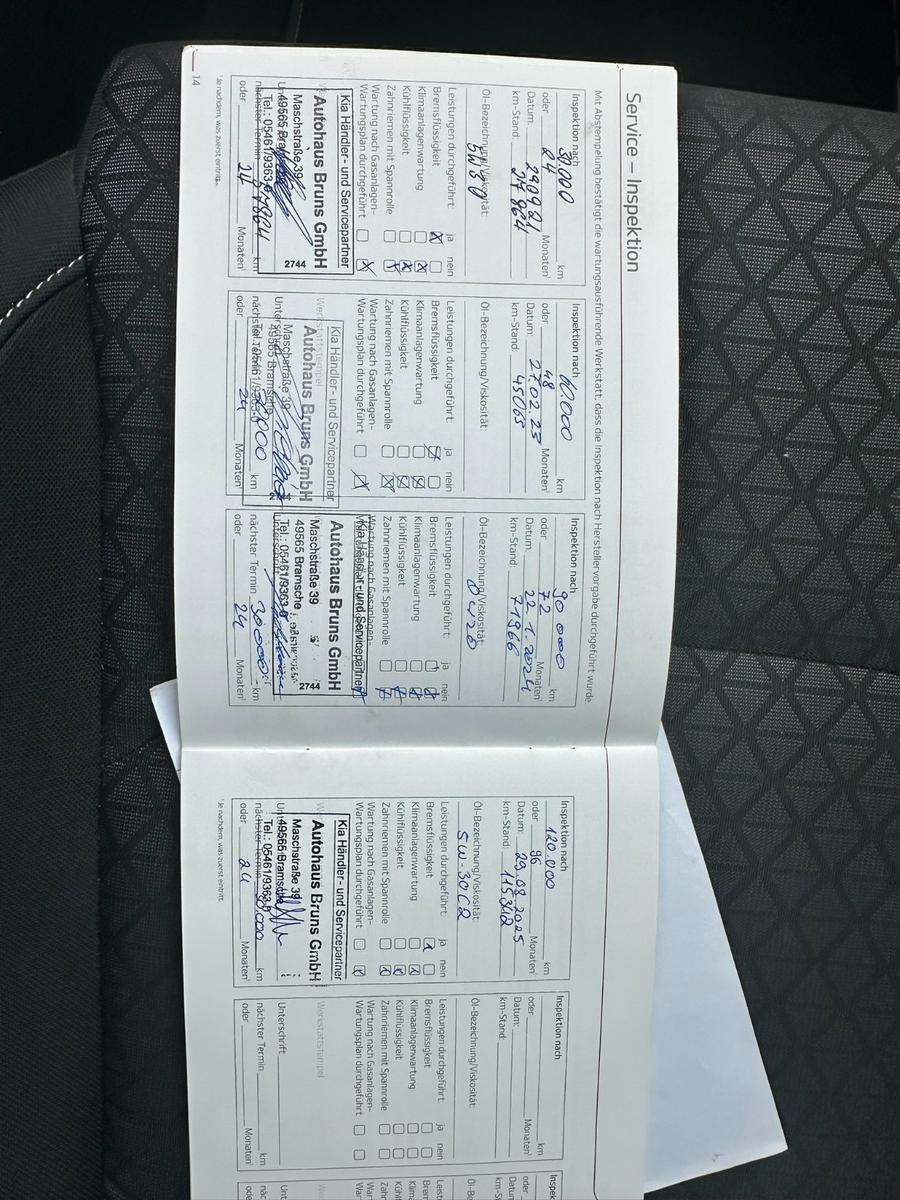 Service – Inspektion
Mit Abstempelung bestätigt die wartungsausführende Werkstatt, dass die Inspektion nach Herstellervorgabe durchgeführt wurde
Inspektion nach
30.000 km
oder 24 Monaten¹
Datum: 23.09.21
km-Stand:
Öl-Bezeichnung/Viskosität:
5W30
Leistungen durchgeführt: ja nein
Bremsflüssigkeit
Klimaanlagenwartung
Kühlflüssigkeit
Zahnriemen mit Spannrolle
Wartung nach Gasanlagen-
Wartungsplan durchgeführt
Kia Händler- und Servicepartner
Autohaus Bruns GmbH
Maschstraße 39
49565
Tel.: 05461/9363-0
2744
nächster Termin km
oder 24 Monaten¹
Inspektion nach
60.000 km
oder 48 Monaten¹
Datum: 27.02.23
km-Stand: 45065
Öl-Bezeichnung/Viskosität:
Leistungen durchgeführt: ja nein
Bremsflüssigkeit
Klimaanlagenwartung
Kühlflüssigkeit
Zahnriemen mit Spannrolle
Wartung nach Gasanlagen-
Wartungsplan durchgeführt
Werkstattstempel
Kia Händler- und Servicepartner
Autohaus Bruns GmbH
Maschstraße 39
49565 Bramsche
km
oder 24 Monaten¹
Inspektion nach
90000 km
oder 72 Monaten¹
Datum: 22.1.2024
km-Stand: 71966
Öl-Bezeichnung/Viskosität:
0W20
Leistungen durchgeführt: ja nein
Bremsflüssigkeit
Klimaanlagenwartung
Kühlflüssigkeit
Zahnriemen mit Spannrolle
Wartung nach Gasanlagen-
Kia Händler- und Servicepartner
Autohaus Bruns GmbH
Maschstraße 39
49565 Bramsche
Tel.: 05461/9363-0
2744
nächster Termin 30000 km
oder 24 Monaten¹
¹Je nachdem, was zuerst eintritt.
14
Inspektion nach
120.000 km
oder 96 Monaten¹
Datum: 20.08.2025
km-Stand:
Öl-Bezeichnung/Viskosität:
5W-30 C2
Leistungen durchgeführt: ja nein
Bremsflüssigkeit
Klimaanlagenwartung
Kühlflüssigkeit
Zahnriemen mit Spannrolle
Wartung nach Gasanlagen-
Wartungsplan durchgeführt
Kia Händler- und Servicepartner
Autohaus Bruns GmbH
Maschstraße 39
49565 Bramsche
Tel.: 05461/9363-0
nächster Termin km
oder 24 Monaten¹
Inspektion nach
km
oder Monaten¹
Datum:
km-Stand:
Öl-Bezeichnung/Viskosität:
Leistungen durchgeführt: ja nein
Bremsflüssigkeit
Klimaanlagenwartung
Kühlflüssigkeit
Zahnriemen mit Spannrolle
Wartung nach Gasanlagen-
Wartungsplan durchgeführt
Werkstattstempel
Unterschrift
nächster Termin km
oder Monaten¹
¹Je nachdem, was zuerst eintritt.